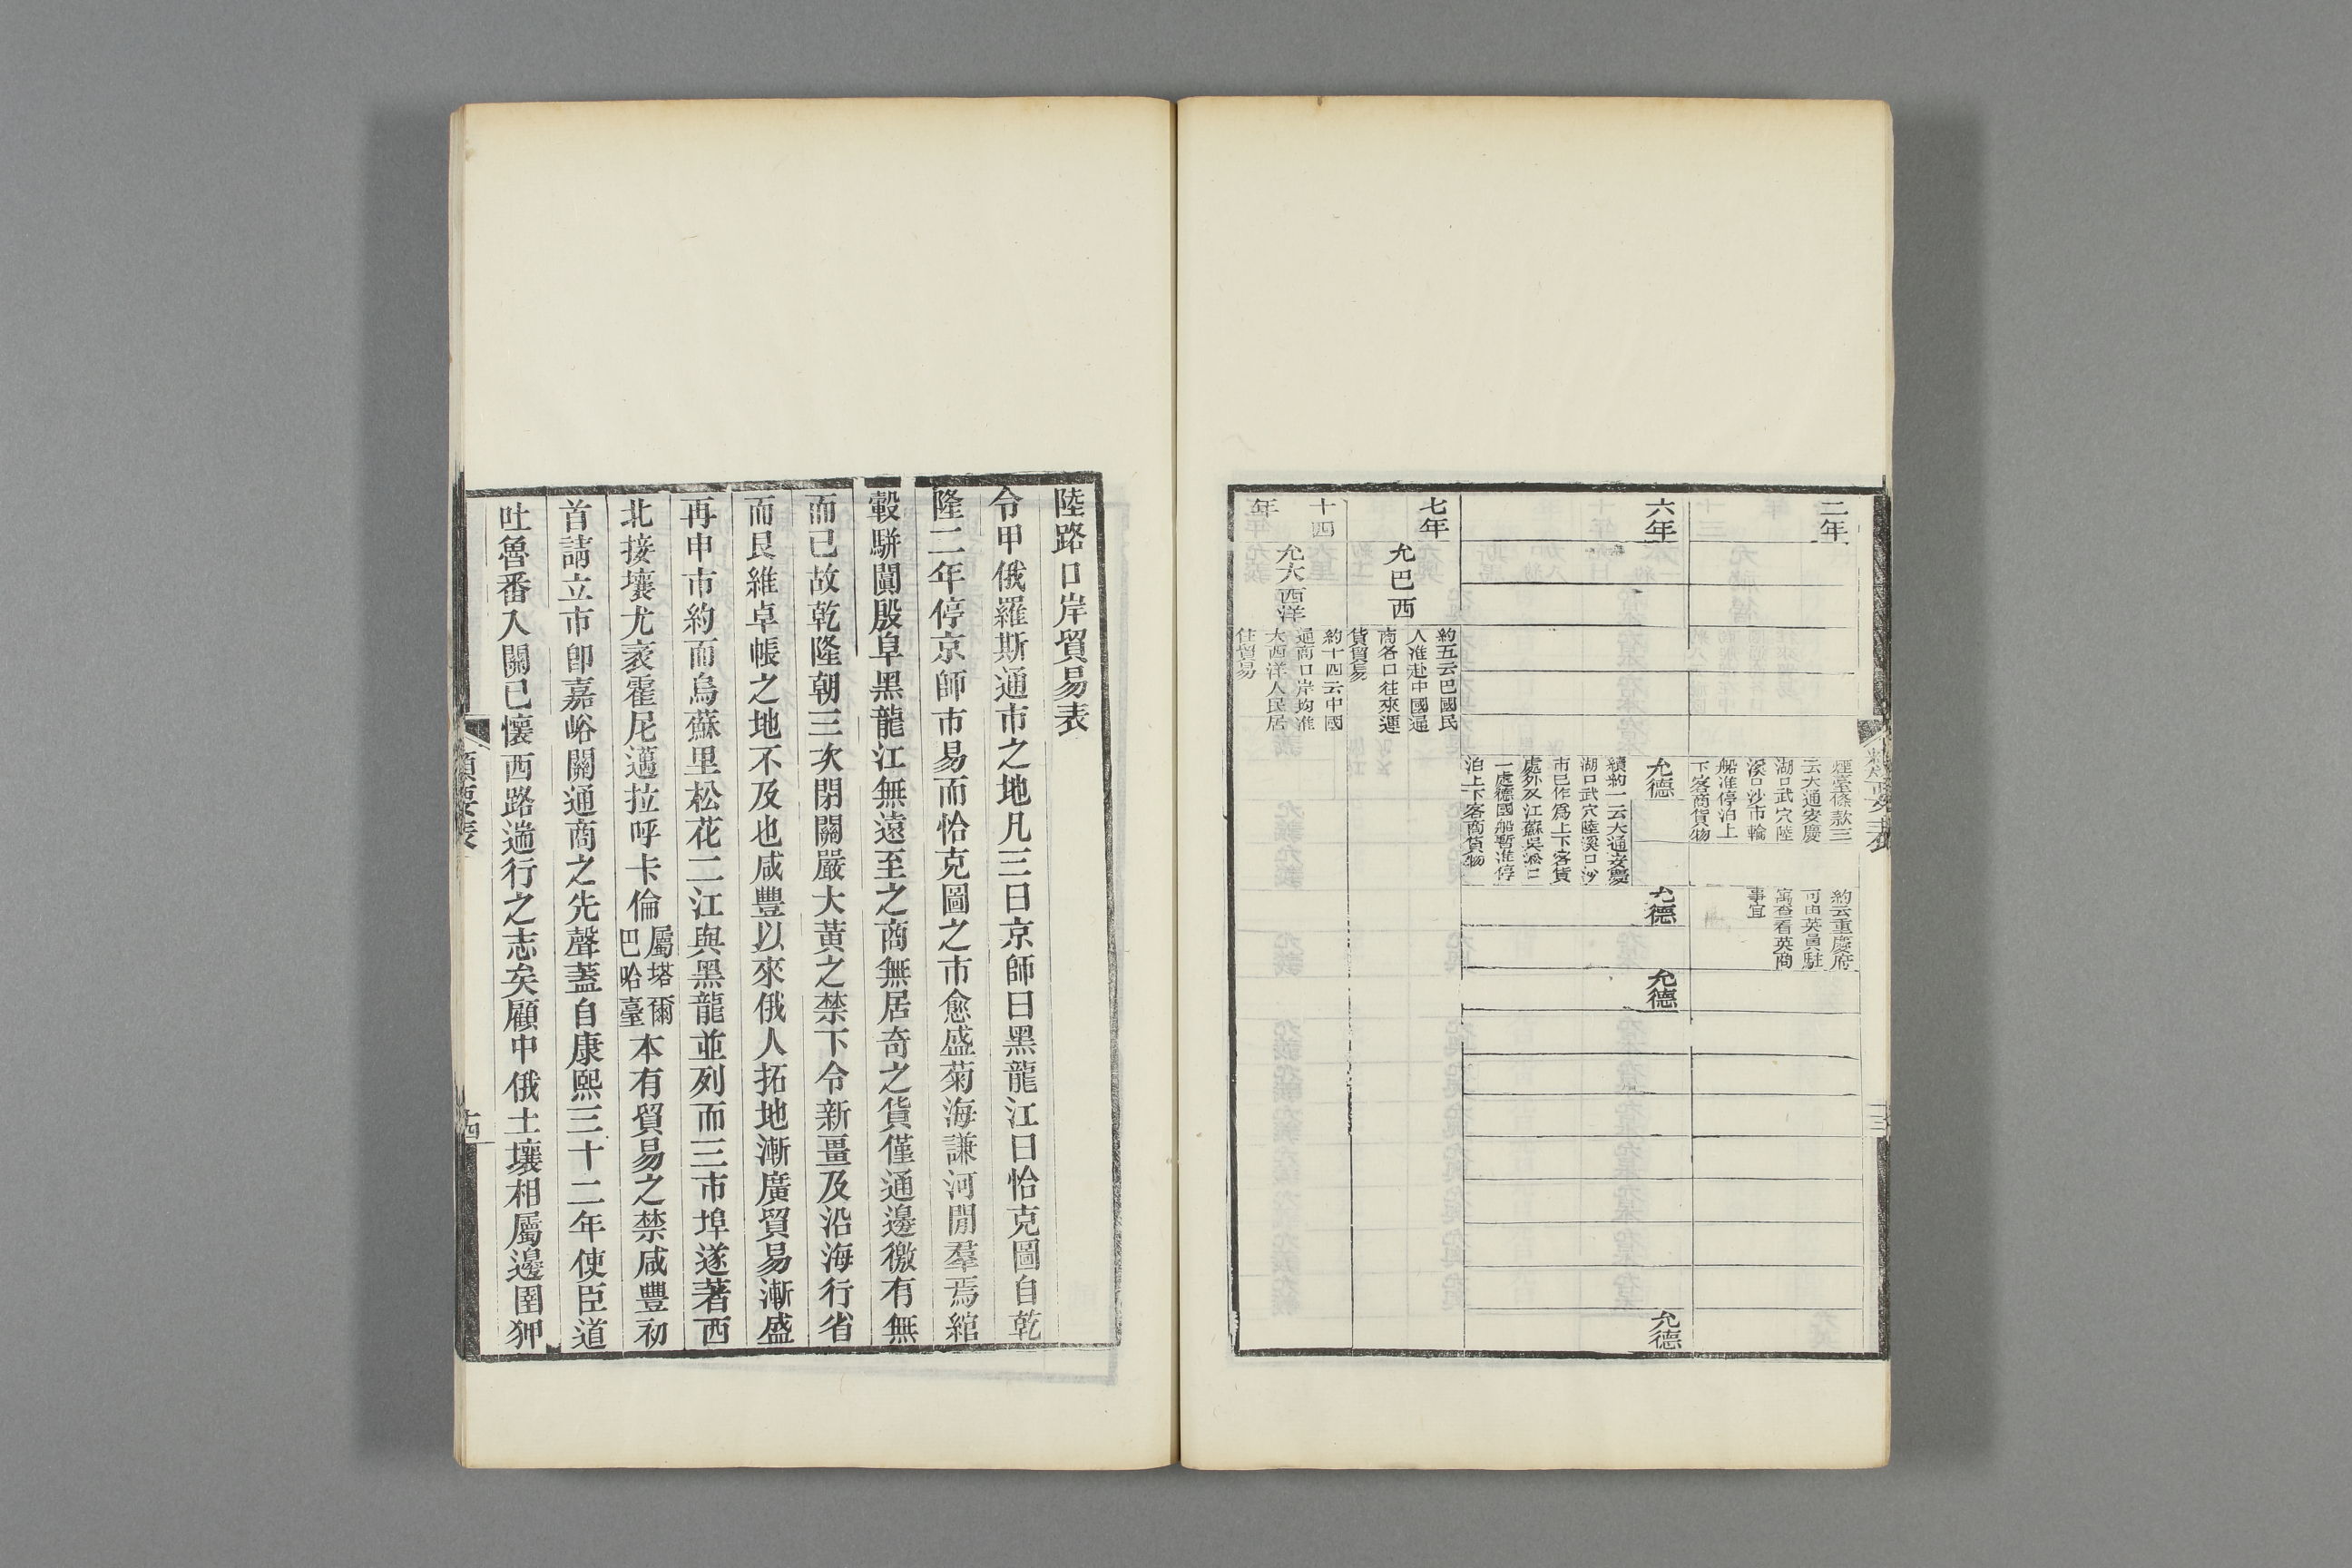 二年
煙臺條款三
云大通安慶
湖口武穴陸
溪口沙市輪
船准停泊上
下客商貨物
約云重慶府
可由英員駐
寓查看英商
事宜
六年
允德
續約一云大通安慶
湖口武穴陸溪口沙
市已作為上下客貨
處外又江蘇吳淞口
一處德國船暫准停
泊上下客商貨物
允德
允德
允德
七年
允巴西
約五云巴國民
人准赴中國通
商各口往來運
貨貿易
十四
年
允大西洋
約十四云中國
通商口岸均准
大西洋人民居
住貿易
陸路口岸貿易表
令甲俄羅斯通市之地凡三曰京師曰黑龍江曰恰克圖自乾
隆二年停京師市易而恰克圖之市愈盛菊海謙河閒羣焉綰
轂駢闐殷阜黑龍江無遠至之商無居奇之貨僅通邊徼有無
而已故乾隆朝三次閉關嚴大黃之禁下令新疆及沿海行省
而艮維卓帳之地不及也咸豐以來俄人拓地漸廣貿易漸盛
再申市約而烏蘇里松花二江與黑龍並列而三市埠遂著西
北接壤尤袤霍尼邁拉呼卡倫屬塔爾巴哈臺本有貿易之禁咸豐初
首請立市卽嘉峪關通商之先聲蓋自康熙三十二年使臣道
吐魯番入關已懷西路遄行之志矣顧中俄土壤相屬邊圉狎
類要表
十四